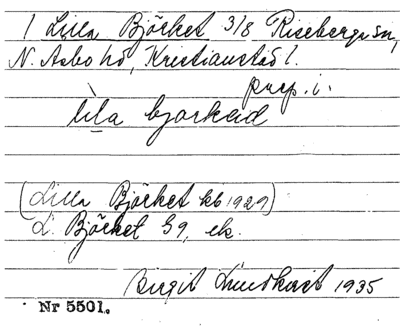 1 Lilla Björket 3/8 Riseberga sn,
N. Åsbo hd, Kristianstad l.
prep. i.
lìla bjorkəd
(Lilla Björket kb 1929)
L. Björket G9, ek.
Birgit Lundkvist 1935
Nr 5501.